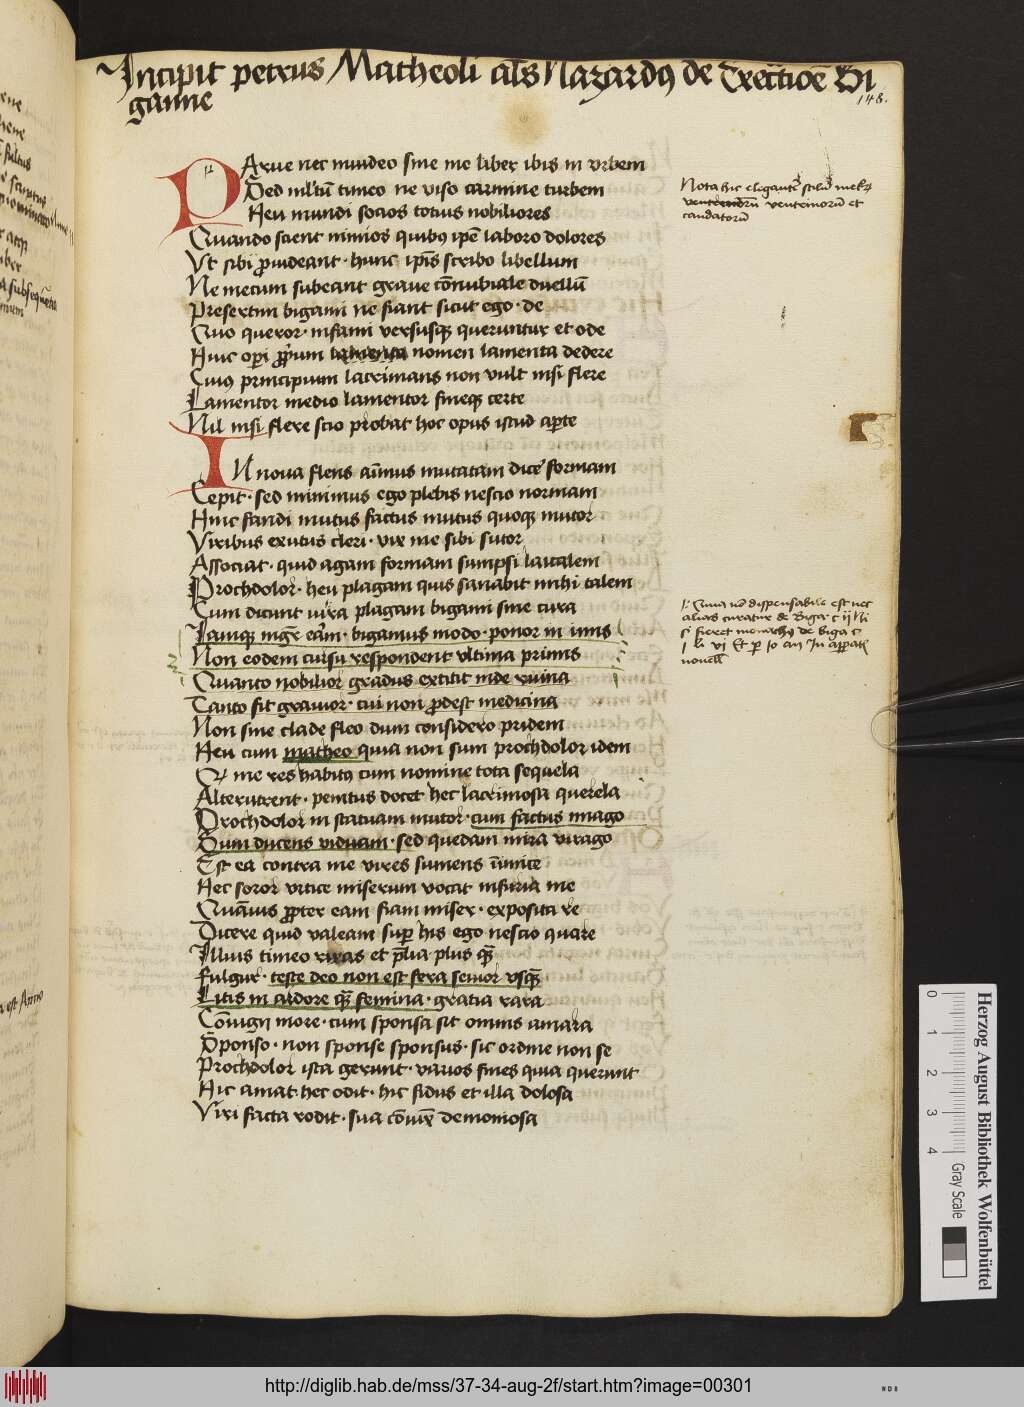 Incipit petrus Matheoli als Nazardus de Execcioe Bi
gamie
148.
PArue nec inuideo sine me liber ibis in vrbem
Sed mltu timeo ne viso carmine turbem
Heu mundi socios totius nobiliores
Quando scient nimios quibus ipe laboro dolores
Vt sibi prouideant · hunc ipis scribo libellum
Ne mecum subeant graue conubiale duellu
Presertim bigami ne fiant sicut ego · de
Quo queror · infami versusque queruntur et ode
Huic operi proprium lamenta nomen lamenta dedere
Cuius principium lacrimans non vult nisi flere
Lamentor medio lamentor fineque certe
Nil nisi flere scio probat hoc opus istud aperte
IN noua flens animus mutatam dicere formam
Cepit · sed minimus ego plebis nescio normam
Hinc fandi mutus factus mutus quoque mutor
Viribus exutus cleri · vix me sibi sutor
Associat · quid agam formam sumpsi laicalem
Prochdolor · heu plagam quis sanabit mihi talem
Cum dicunt iura plagam bigami sine cura
Iamque miger eram · bigamus modo · ponor in imis
Non eodem cursu respondent vltima primis
Quanto nobilior gradus extitit inde ruina
Tanto fit grauior · cui non prodest medicina
Non sine clade fleo dum considero pridem
Heu cum matheo quia non sum prochdolor idem
Et me res habitus cum nomine tota sequela
Alterutrent · penitus docet hec lacrimosa querela
Prochdolor in statuam mutor · cum factus imago
Sum ducens viduam · sed quedam mira virago
Est ea contra me vires sumens inimice
Hec soror vrtice miserum vocat in furia me
Quamuis propter eam fiam miser · exposita re
Dicere quid valeam super his ego nescio quare
Illius timeo rixas et prelia plus quam
Fulgur · teste deo non est fera seuior vsquam
Litis in ardore quam femina · gratia rara
Coniugii more · cum sponsa sit omnis amara
Sponso · non sponse sponsus · sic ordine non se
Prochdolor ista gerunt · varios fines quia querunt
Hic amat hec odit · hic fidus et illa dolosa
Viri facta rodit · sua coniux demoniosa
Nota hic elegante stilu
ventrinorum et
caudatoru
dispensabile est nec
alias curatur de Biga · c ij Ni
si fieret monachus de biga c
nouell
Herzog August Bibliothek Wolfenbüttel
0 1 2 3 4
Gray Scale
http://diglib.hab.de/mss/37-34-aug-2f/start.htm?image=00301